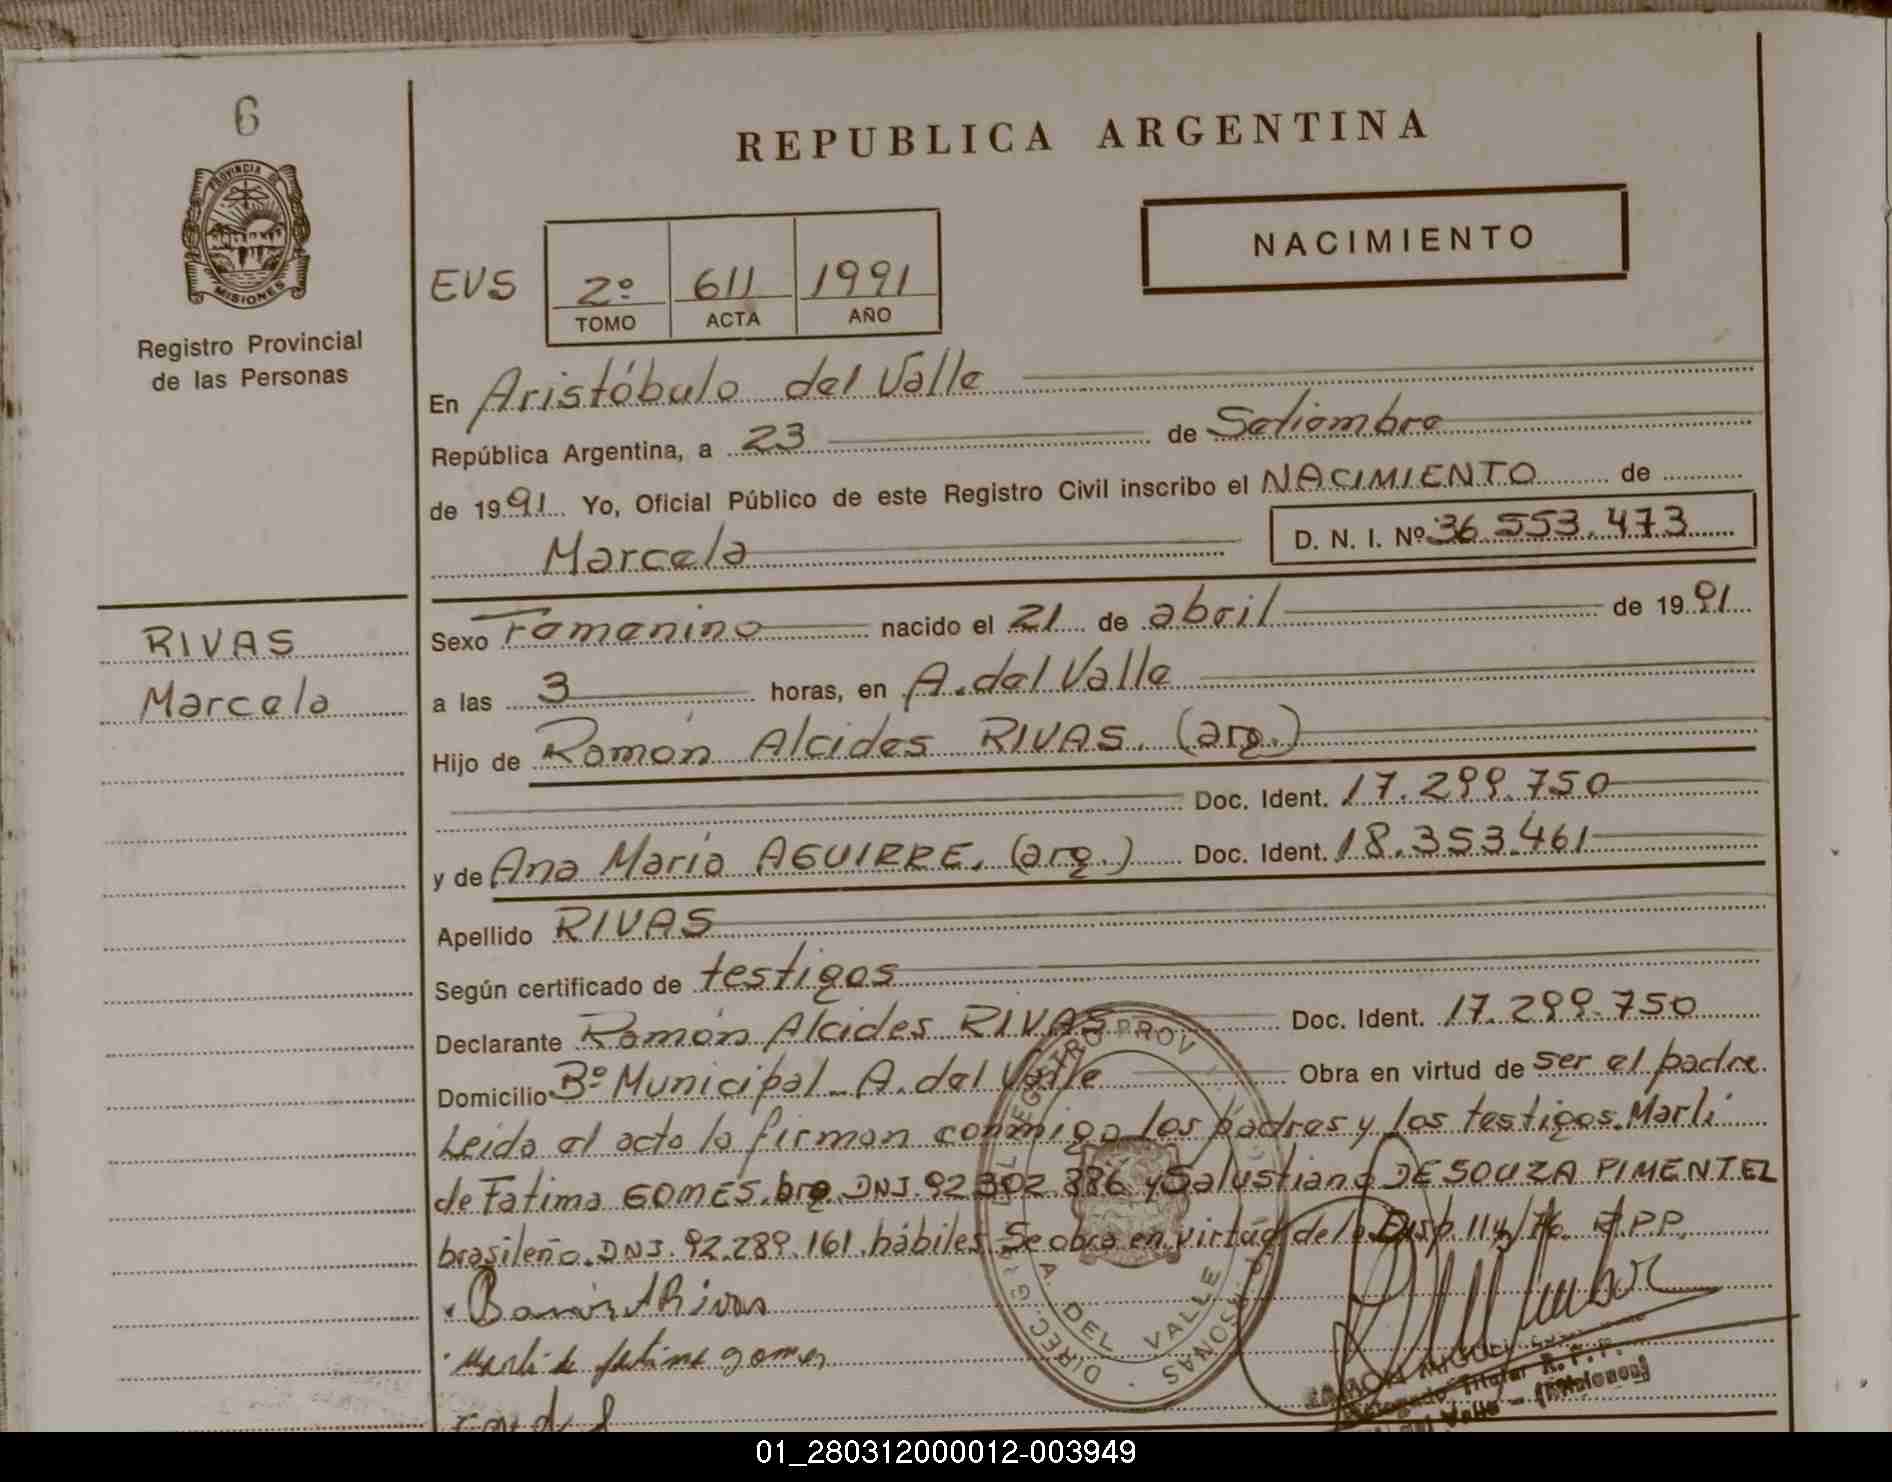 6
PROVINCIA DE
MISIONES
Registro Provincial
de las Personas
RIVAS
Marcela
REPUBLICA ARGENTINA
NACIMIENTO
EVS 2º 611 1991
TOMO ACTA AÑO
En Aristóbulo del Valle
República Argentina, a 23 de Setiembre
de 1991 Yo, Oficial Público de este Registro Civil inscribo el NACIMIENTO de
Marcela D. N. I. Nº 36.553.473
Sexo Femenino nacido el 21 de abril de 1991
a las 3 horas, en A. del Valle
Hijo de Ramón Alcides RIVAS. (arg.)
Doc. Ident. 17.299.750
y de Ana María AGUIRRE. (arg.) Doc. Ident. 18.353.461
Apellido RIVAS
Según certificado de testigos
Declarante Ramón Alcides RIVAS Doc. Ident. 17.299.750
Domicilio Bº Municipal - A. del Valle Obra en virtud de ser el padre.
Leída el acta la firman conmigo los padres y los testigos Marli
de Fatima GOMES. bra. DNI. 92.302.886 y Salustiano DE SOUZA PIMENTEL
brasileño. DNI. 92.289.161. hábiles. Se obra en virtud de la Disp. 114/76. R.P.P.
Marli de fatima gomes
DIREC. GRAL REGISTRO PROV. PERSONAS
A. DEL VALLE
RAMON MIGUEL
Delegado Titular R. P. P.
del Valle - (Misiones)
01_280312000012-003949